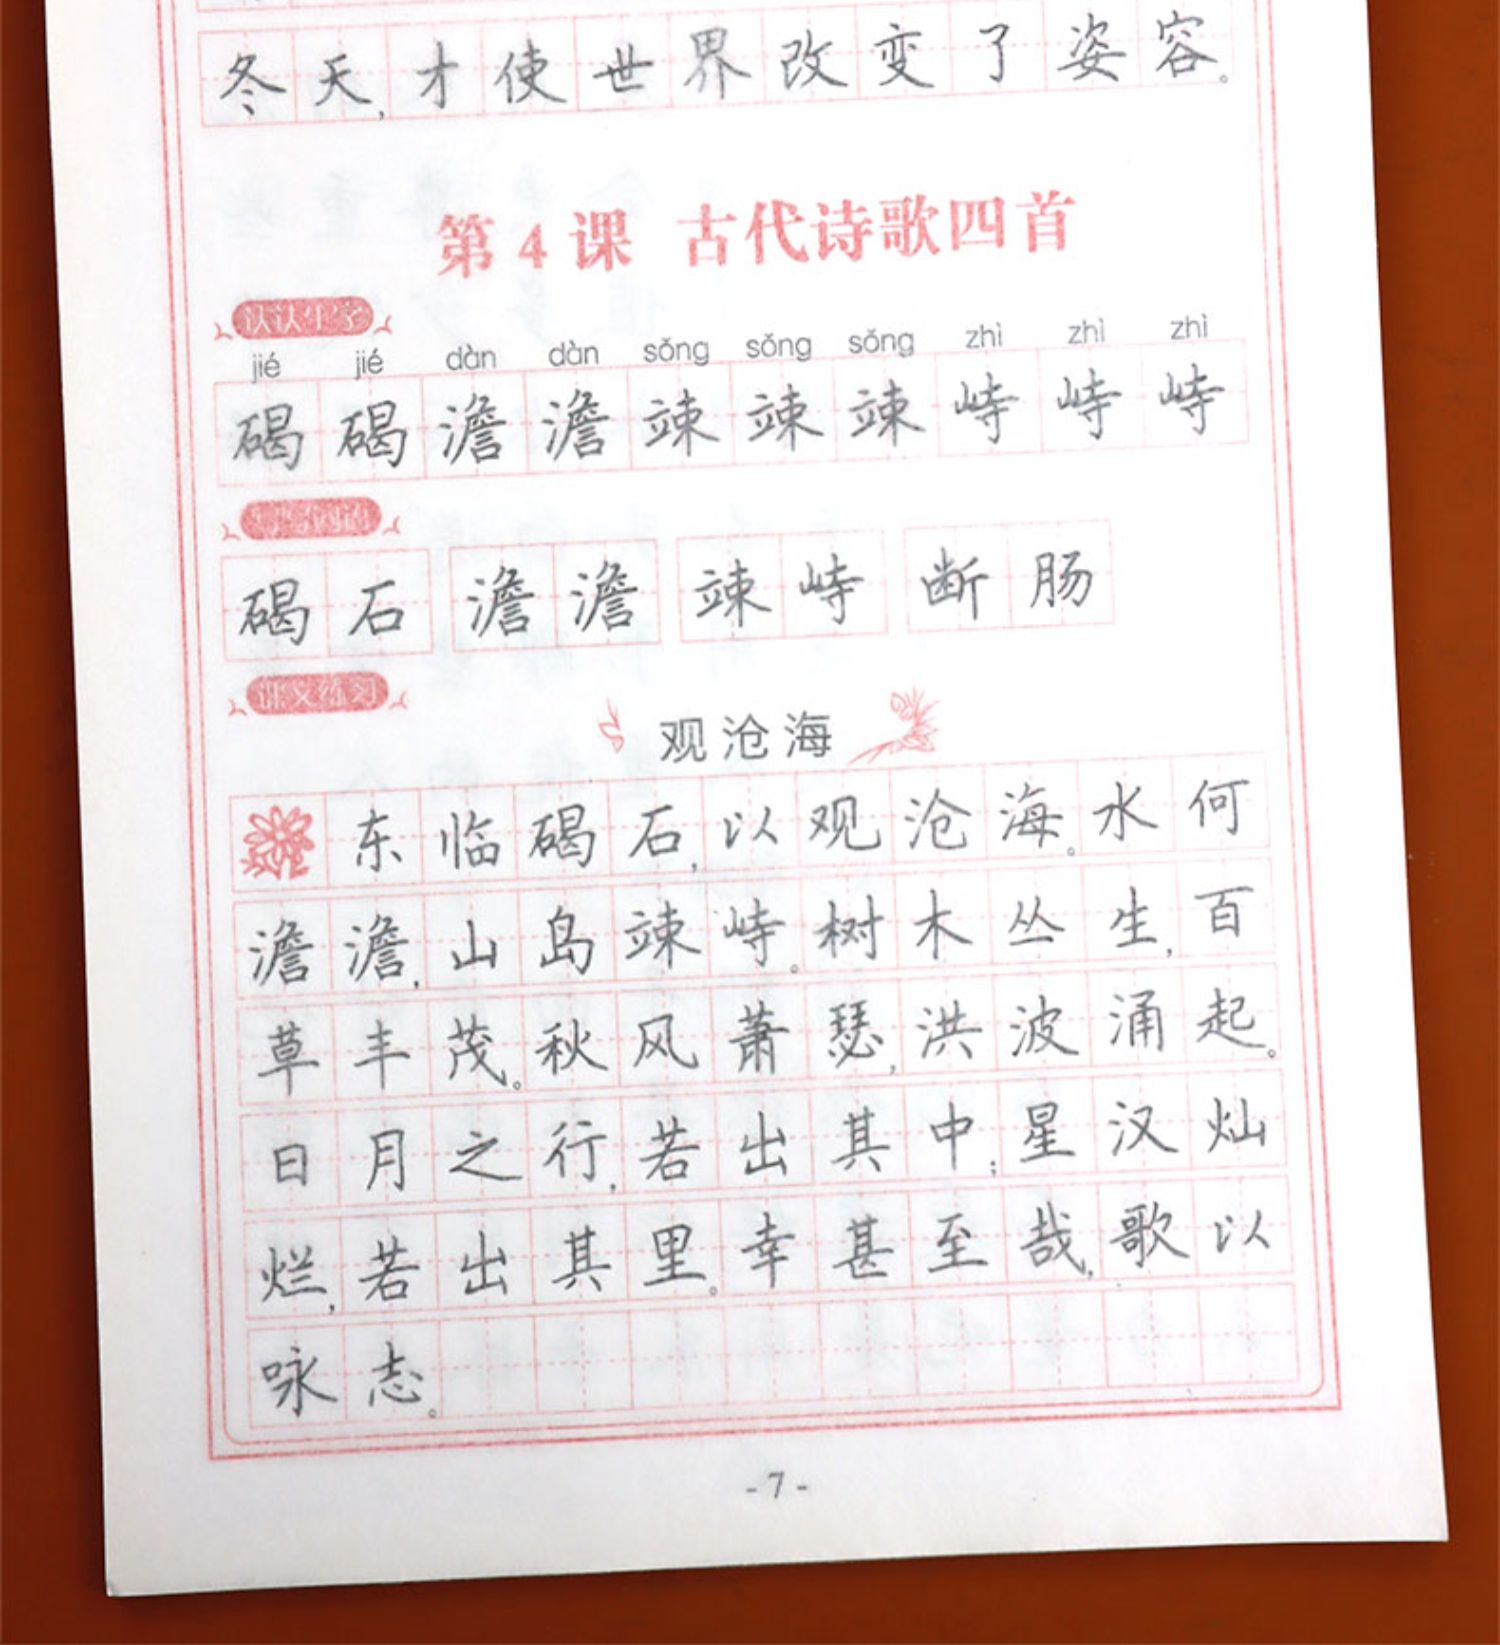 冬天,才使世界改变了姿容。
第4课 古代诗歌四首
认认生字
jié jié dàn dàn sǒng sǒng sǒng zhì zhì zhì
碣碣澹澹竦竦竦峙峙峙
碣石 澹澹 竦峙 断肠
课文练习
观沧海
东临碣石,以观沧海。水何
澹澹,山岛竦峙。树木丛生,百
草丰茂。秋风萧瑟,洪波涌起。
日月之行,若出其中;星汉灿
烂,若出其里。幸甚至哉,歌以
咏志。
-7-